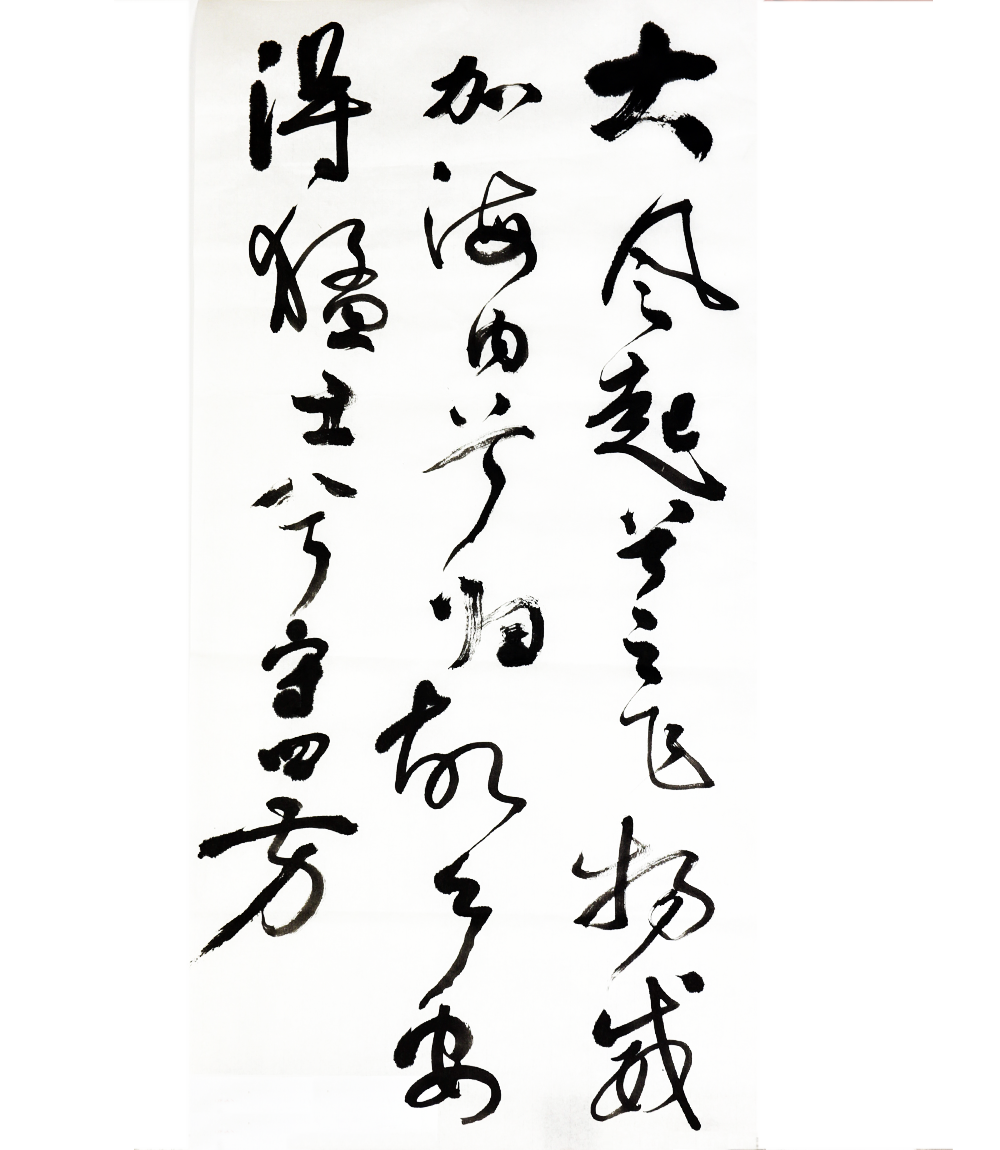 大风起兮云飞扬威
加海内兮归故乡安
得猛士兮守四方